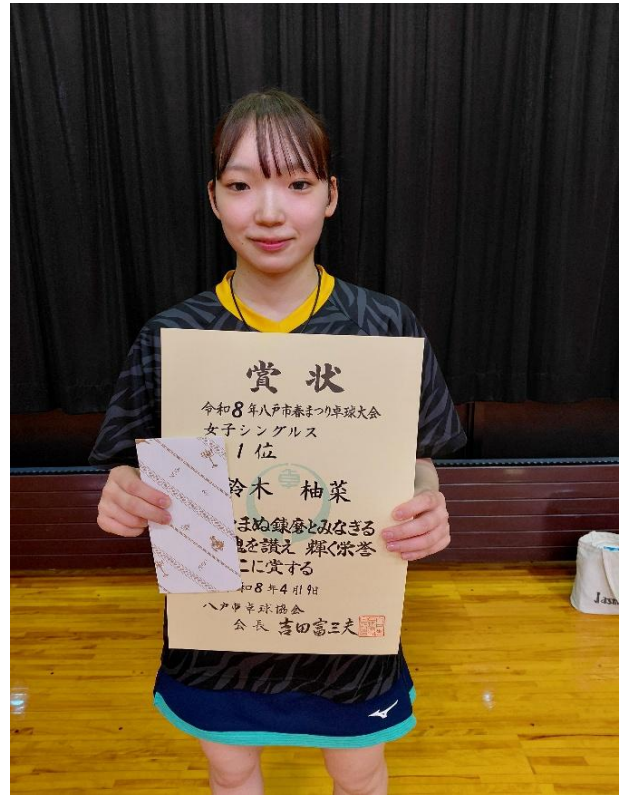 賞状
令和8年八戸市春まつり卓球大会
女子シングルス
1位
鈴木 柚菜
まぬ錬磨とみなぎる
魂を讃え 輝く栄誉
こに賞する
和8年4月19日
八戸市卓球協会
会長 吉田富三夫
卓